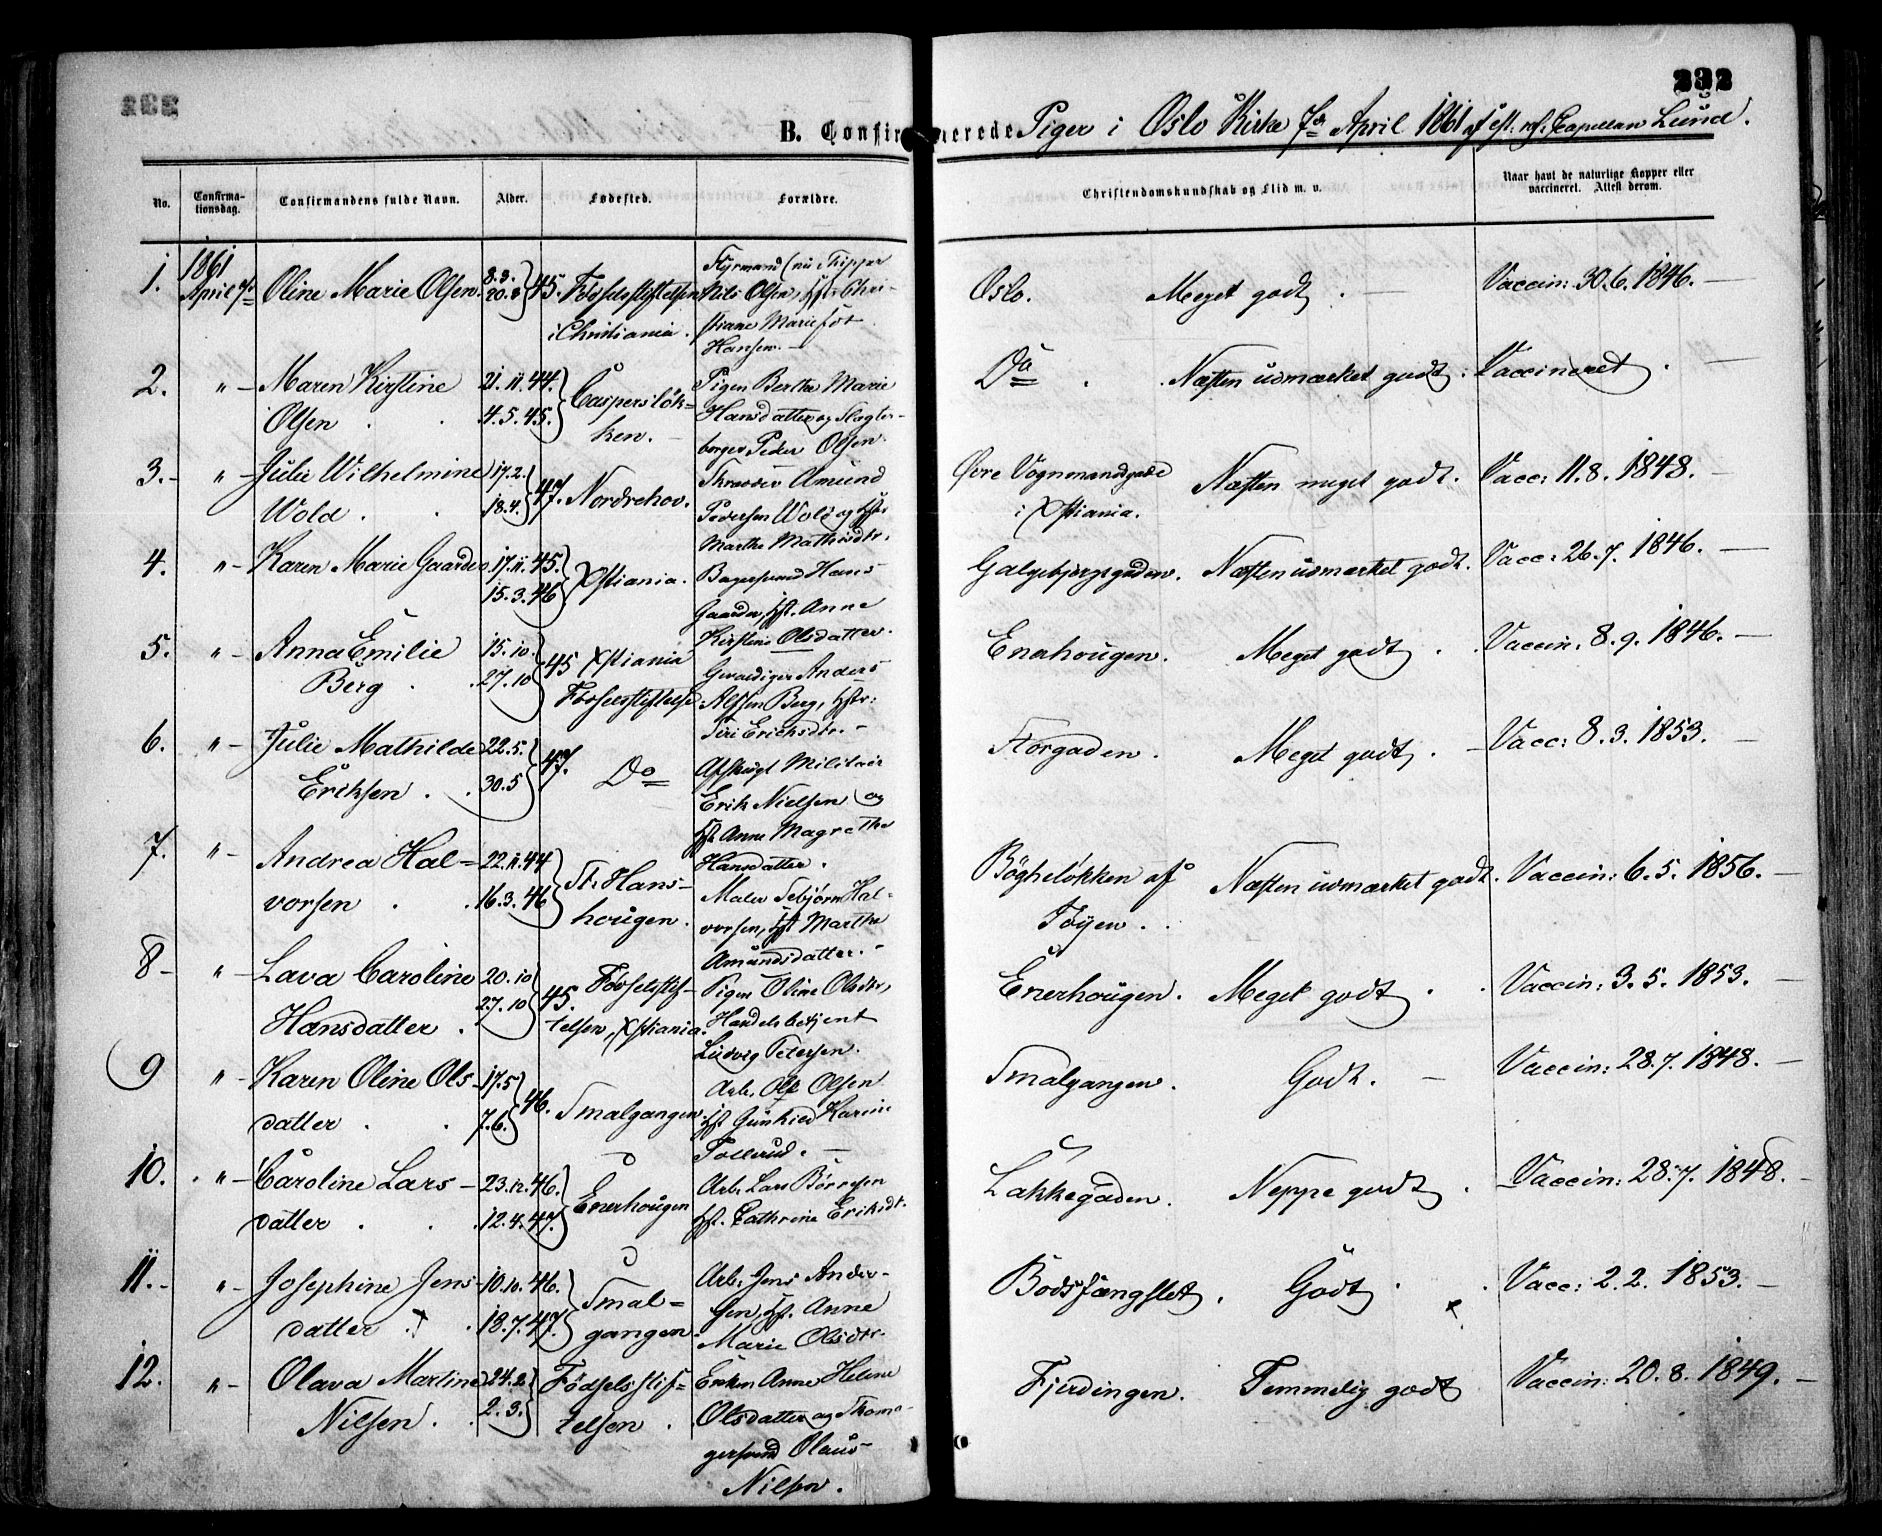 232
B. Confirmerede Piger i Oslo Kirke 7de April 1861 af Capellan Lund.
No. Confirma-tionsdag. Confirmandens fulde Navn. Alder. Fødested. Forældre. Christendomskundskab og Flid m. v. Naar havt de naturlige Kopper eller vaccineret. Attest derom.
1. 1861 April 7de Oline Marie Olsen. 8.8. 20.8 45. Fødselsstiftelsen i Christiania. Styrmand (nu Skipper Nils Olsen, Hst: Christiane Marie født Hansen.— Oslo. Meget godt. — Vaccin: 30.6.1846. —
2. " – Maren Kirstine Olsen . . 21.11.44. 4.5.45. Casperslökken. — Pigen Berthe Marie Hansdatter og Slagterborger Peder Olsen. Do . Næsten udmærket godt. Vaccineret. —
3.- " – Julie Wilhelmine Wold . . 17.2. 18.4. 47. Nordrehov. Amund Pedersen Wold og Hst: Marthe Mathisdtr. Øvre Vognmandsgade i Xstiania. Næsten meget godt. Vacc: 11.8.1848. –
4. " – Karen Marie Gaarder 17.11.45. 15.3.46 Xstiania. Bagersvend Hans Gaarder, Hst. Anne Kirstine Olsdatter. Galgebjergsgaden. Næsten udmærket godt. Vacc: 26.7.1846. —
5. " – Anna Emilie Berg . . 15.10. 27.10 45 Xstiania Fødselsstiftelse Gevaldiger Anders Alfsen Berg, Hstr: Siri Ericksdtr. – Enerhougen. Meget godt . Vaccin: 8.9.1846. —
6. " – Julie Mathilde Eriksen . . 22.5. 30.5 47. Do Afskuyt Militær Erik Nielsen og Hst. Anne Magrethe Hansdatter. Storgaden. Meget godt. – Vacc: 8.3.1853. –
7. " – Andrea Halvorsen . . 22.11.44 16.3.46 St: Hanshougen. Maler Halvorsen, Hst Marthe Amundsdatter. – Böghelökken af Töyen. . Næsten udmærket godt. Vaccin: 6.5.1856. –
8 – " – Lava Caroline Hansdatter . 20.10 27.10 45. Födselsstiftelsen, Xstiania. Pigen Oline Olsdtr, Handelsbetjent Ludvig Petersen. Enerhougen. Meget godt . . Vaccin: 3.5.1853. –
9 " – Karen Oline Olsdatter . . 17.5 7.6. 46. Smalgangen. Arb. Ole Olsen Hst Karine Tollerud. – Smalgangen. Godt. – Vaccin: 28.7.1848. –
10. . " – Caroline Larsdatter . . 23.12.46. 12.4.47. Enerhougen Arb. Lars Börresen Hst. Cathrine Eriksdt. Lakkegaden. Neppe godt . Vaccin: 28.7.1848. –
11.- " – Josephine Jensdatter . . 10.10.46. 18.7.47. Smalgangen Arb: Jens Andersen, Hst. Anne Marie Olsdtr. Bodsfængslet. Godt . . Vacc: 2.2.1853. –
12. " – Olava Martine Nilsen. . 24.2. 2.3. Födselsstiftelsen . Enken Anne Helene Olsdatter og Olaus Nilsen. Fjerdingen. Temmelig godt Vaccin: 20.8.1849. –